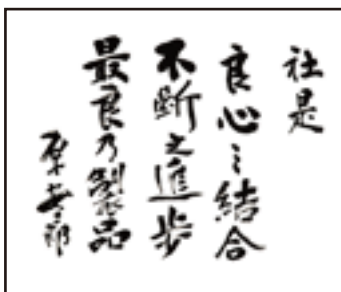 社是
良心之結合
不断之進歩
最良乃製品